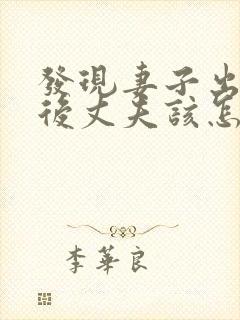 發現妻子出
後丈夫該怎
李華良